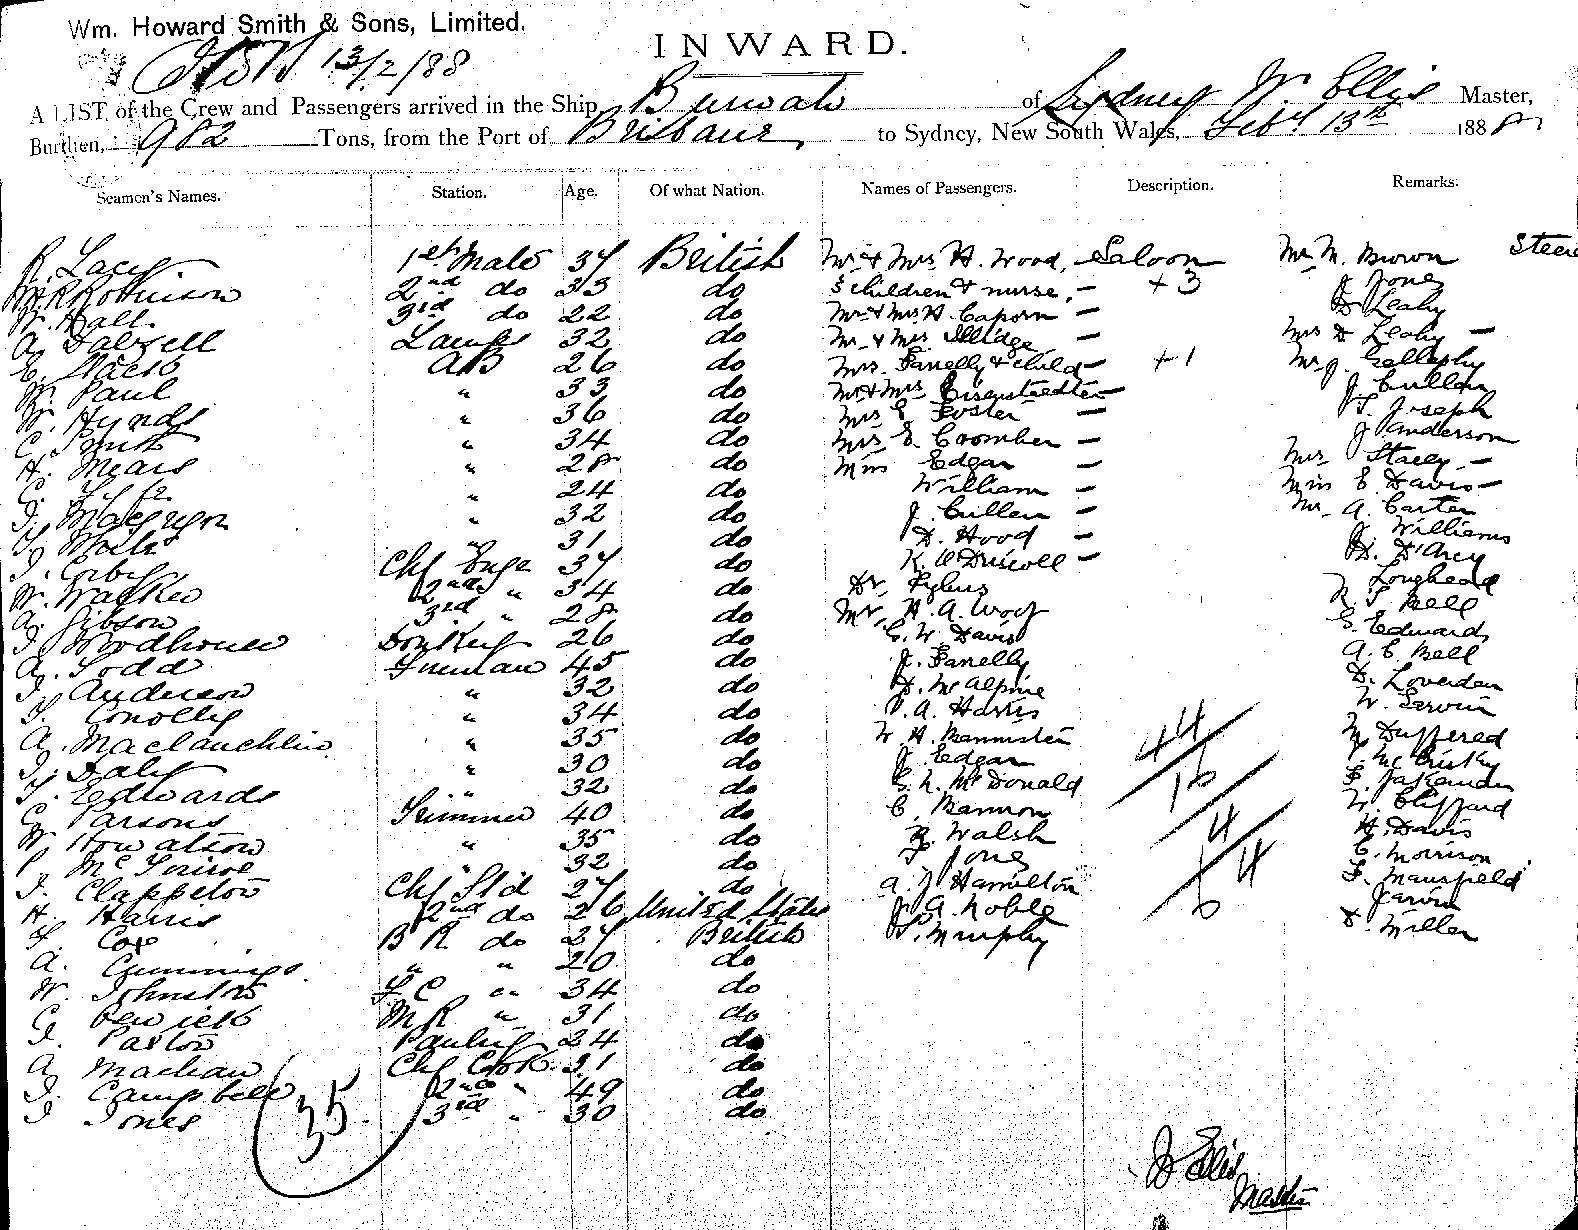 Wm. Howard Smith & Sons, Limited.
13/2/88
INWARD.
A LIST of the Crew and Passengers arrived in the Ship Burwah of Sydney W. Ellis Master,
Burthen, 982 Tons, from the Port of Brisbane to Sydney, New South Wales, Feby 13th 1888
Seamen's Names. Station. Age. Of what Nation. Names of Passengers. Description. Remarks.
R. Lacy 1st Mate 37 British Mr & Mrs H. Wood, Saloon Mr M. Brown
Robinson 2nd do 33 do children & nurse, — +3 J Jones
W. Hall 3rd do 22 do Mr & Mrs H. Caporn — D Leahy
A. Dalzell Lamps 32 do Mr & Mrs Illidge Mrs D Leahy —
E. Black AB 26 do Mrs. Fanelly & child — +1 Mr J. Gallephy
W. Paul " 33 do Mr & Mrs Eisenstaedter — J Cullen
W. Hynds " 36 do Mrs E Foster — T. Joseph
C. Smith " 34 do Mrs E. Coomber — J Anderson
H. Mears " 28 do Miss Edgar — Mrs Stacey —
" 24 do William — Miss E Davis —
Macgregor " 32 do J. Cullen — Mr. A. Carter
" 31 do D. Hood — J. Williams
J. Corby Chf Engr 37 do K. O'Driscoll — D. D'Arcy
W. Walker 2nd " 34 do Dr. Loughead
A. Gibson 3rd " 28 do Mr. H. A. Woof N. S Bell
J. Woodhouse Donkey 26 do C. W. Davis G. Edwards
A. Todd Fireman 45 do J. Fanelly A. C. Bell
J. Anderson " 32 do D. McAlpine D. Loverden
T. Conolly " 34 do A. Harris W.
A. Maclauchlin " 35 do W. H. Bannister 44 Duffered
J. Daly " 30 do J Edgar 16 McCrisky
T. Edwards " 32 do G. N. McDonald
G. Parsons Trimmer 40 do C. Bannon W. Clifford
W. Howatson " 35 do Walsh 4 H. Davis
P. " 32 do Jones C. Morrison
J. Clappeton Chf Std 27 do A. J Hamilton 4 F. Mansfield
H. Harris 2nd do 26 United States J. A. Noble 6 Jarvis
T. Cox B R do 27 British T. Murphy D. Miller
A. Cummings " " 20 do
W. Johnston F C " 34 do
G. Bewick M R " 31 do
J. Paxton Pantry 24 do
A. Machan Chf Cook 31 do
J. Campbell 2nd " 49 do
J. Jones 3rd " 30 do
35
W Ellis
Master